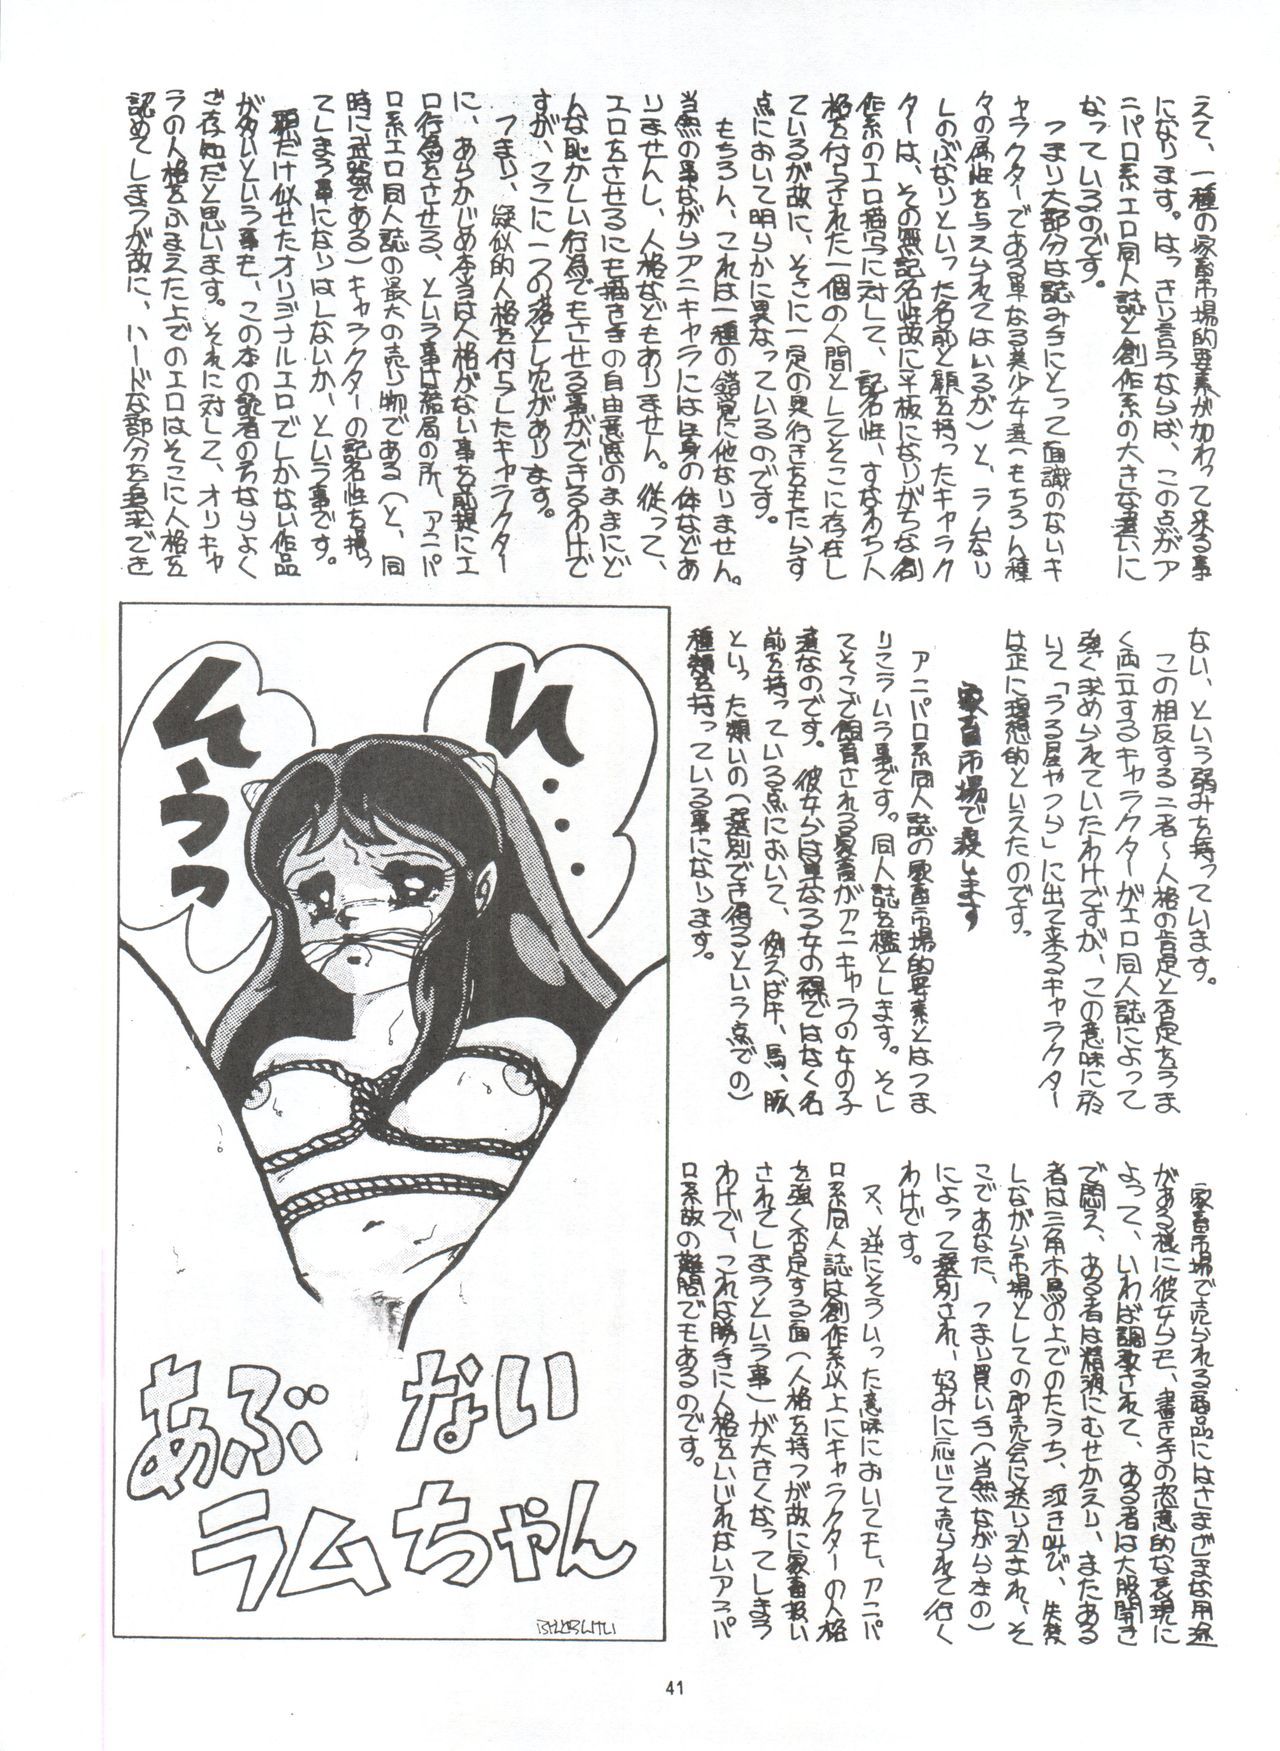 えて、一種の家畜市場的要素が加わって来る事
になります。はっきり言うならば、この点がア
ニパロ系エロ同人誌と創作系の大きな違いに
なっているのです。
つまり大部分は読みきにとって面識のないキ
ャラクターである単なる美少女達（もちろん種
々の属性を与えられてはいるが）と、ラムなり
しのぶなりといった名前と顔を持ったキャラク
ターは、その無記名性故に平板になりがちな創
作系のエロ描写に対して、記名性、すなわち人
格を付与された一個の人間としてそこに存在し
ているが故に、そこに一定の奥行きをもたらす
点において明らかに異なっているのです。
もちろん、これは一種の錯覚に他なりません。
当然の事ながらアニキャラには生身の体などあ
りませんし、人格などもありません。従って、
エロをさせるにも描ききの自由意思のままにど
んな恥かしい行為でもさせる事ができるわけで
すが、ここに一つの落とし穴があります。
つまり、疑似的人格を付与したキャラクター
に、あらかじめ本当は人格がない事を前提にエ
ロ行為をさせる、という事は結局の所、アニパ
ロ系エロ同人誌の最大の売り物である（と、同
時に
である）キャラクターの記名性を損っ
てしまう事になりはしないか、という事です。
顔だけ似せたオリジナルエロでしかない作品
が多いという事も、この本の読者の方ならよく
ご存知だと思います。それに対して、オリキャ
ラの人格をふまえた上でのエロはそこに人格を
認めてしまうが故に、ハードな部分を追求でき
ない、という弱みを持っています。
この相反する二者〜人格の肯定と否定をうま
く両立するキャラクターがエロ同人誌によって
強く求められていたわけですが、この意味に於
いて「うる星やつら」に出て来るキャラクター
は正に理想的といえたのです。
家畜市場で
します
アニパロ系同人誌の家畜市場的要素とはつま
りこういう事です。同人誌を檻とします。そし
てそこで飼育される家畜がアニキャラの女の子
達なのです。彼女らは単なる女の裸ではなく名
前を持っている点において、例えば牛、馬、豚
といった類いの（選別でき得るという点での）
種類を持っている事になります。
家畜市場で売られる商品にはさまざまな用途
がある様に彼女らモ、書き手の恣意的な表現に
よって、いわば調教されて、ある者は大股開き
で悶え、ある者は精液にむせかえり、またある
者は三角木馬の上でのたうち、泣き叫び、失禁
しながら市場としての即売会に送り込まれ、そ
こであなた、つまり買い手（当然ながら本の）
によって選別され、好みに応じて売られて行く
わけです。
又、逆にそういった意味においても、アニパ
ロ系同人誌は創作系以上にキャラクターの人格
を強く否定する面（人格を持つが故に家畜扱い
されてしまうという事）が大きくなってしまう
わけで、これは勝手に人格をいじれないアニパ
ロ系故の難問でもあるのです。
い・・・
んうっ
あぶない
ラムちゃん
41